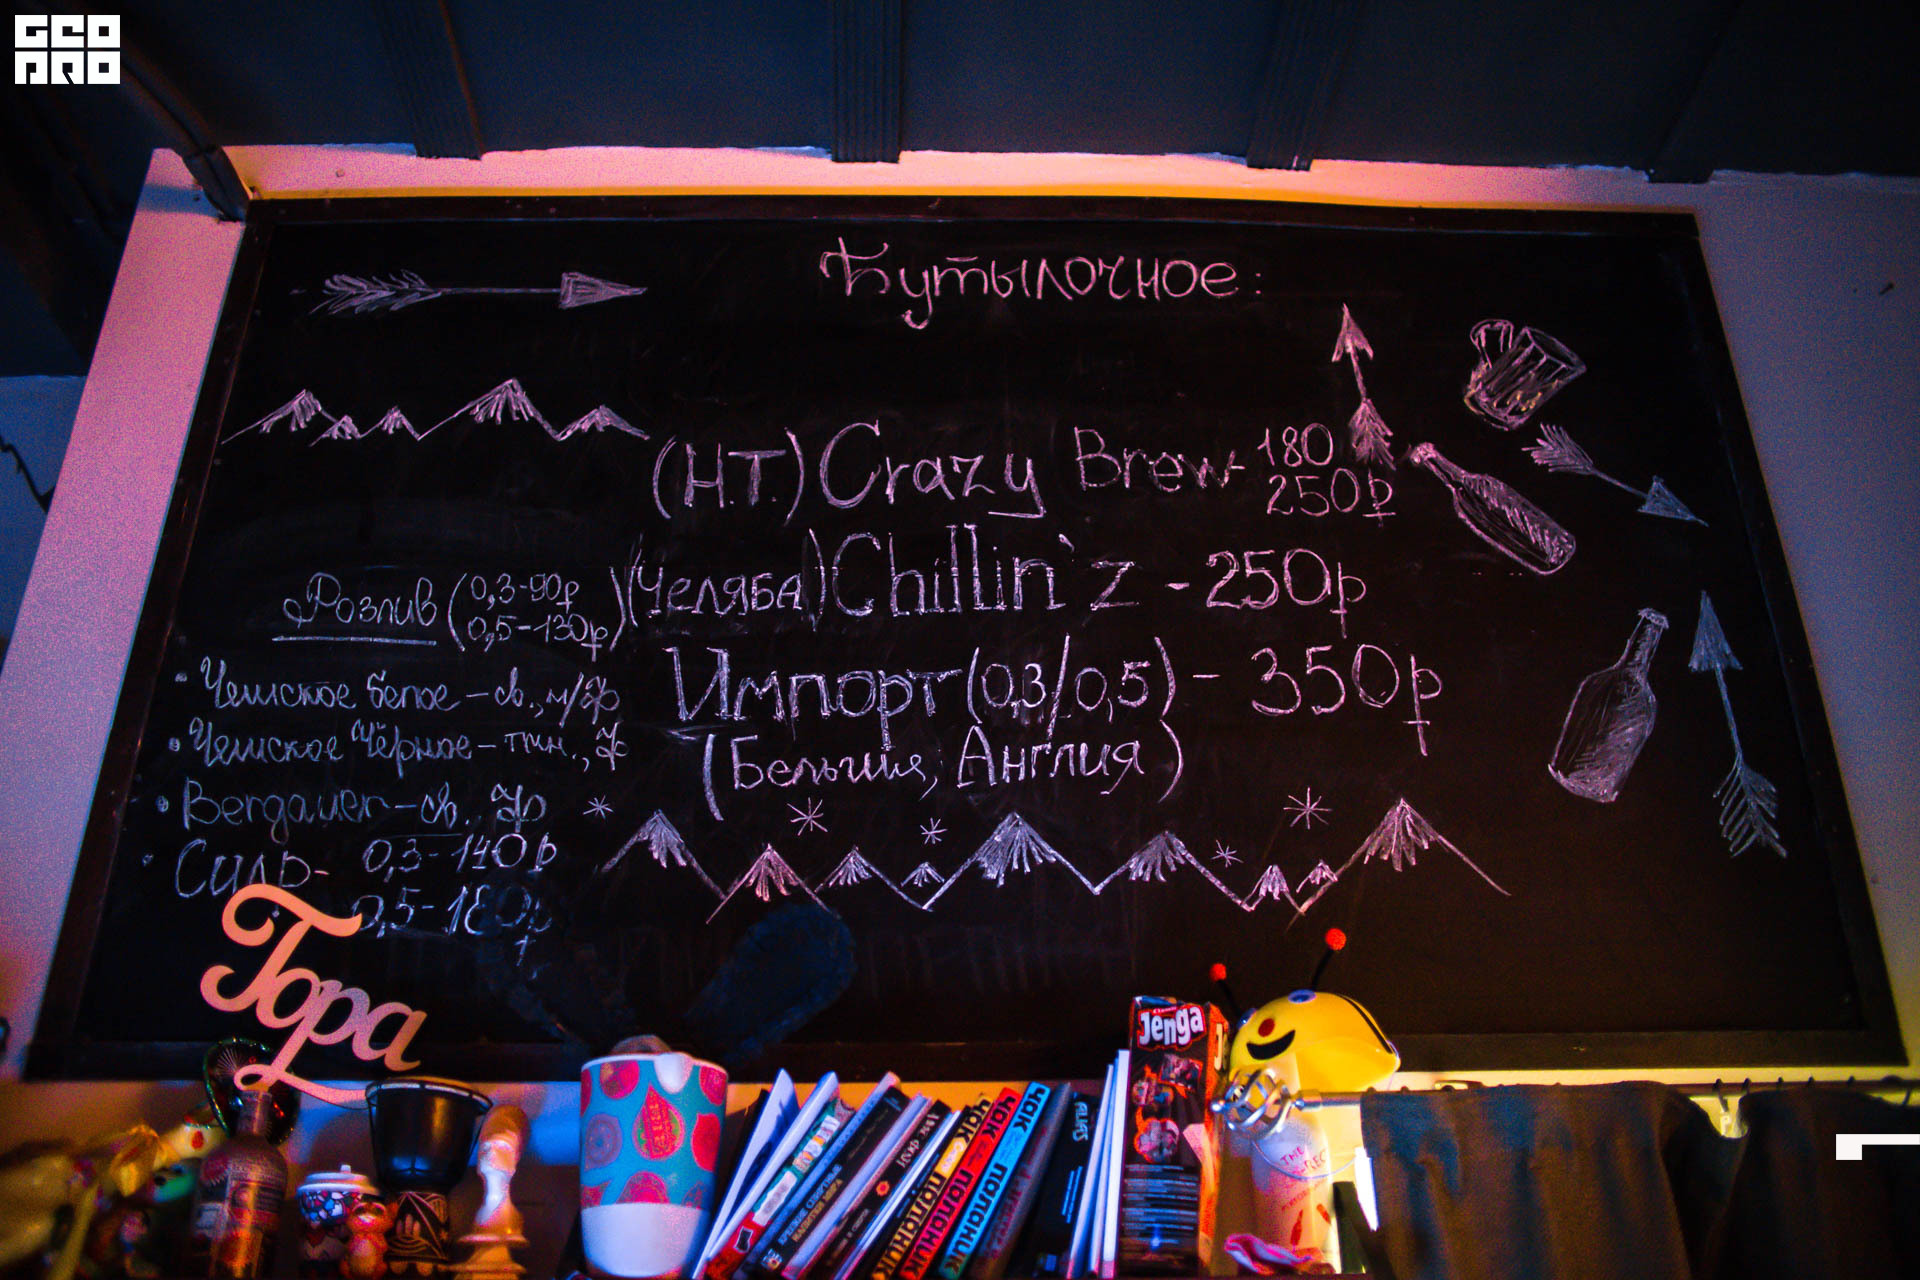 GEO
PRO
Бутылочное:
(Н.Т.) Crazy Brew - 180
250р
(Челяба) Chillin`z - 250р
Импорт (0,3/0,5) - 350р
(Бельгия, Англия)
Розлив (0,3-90р
0,5-130р)
Чешское белое - св., н/ф
Чешское Чёрное - тмн., ф
Bergauer - св., ф
Сидр - 0,3-140р
0,5-180р
Гора
Jenga
ЧАК ПАЛАНИК
ЧАК ПАЛАНИК
ЧАК ПАЛАНИК